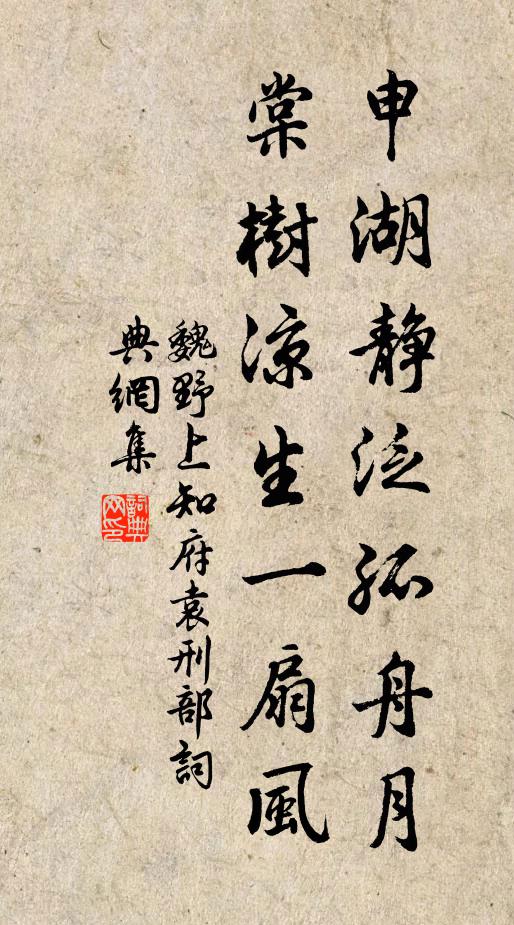 申湖静泛孤舟月
棠樹凉生一扇風
魏野上知府袁刑部詞
典網集
詞典網印